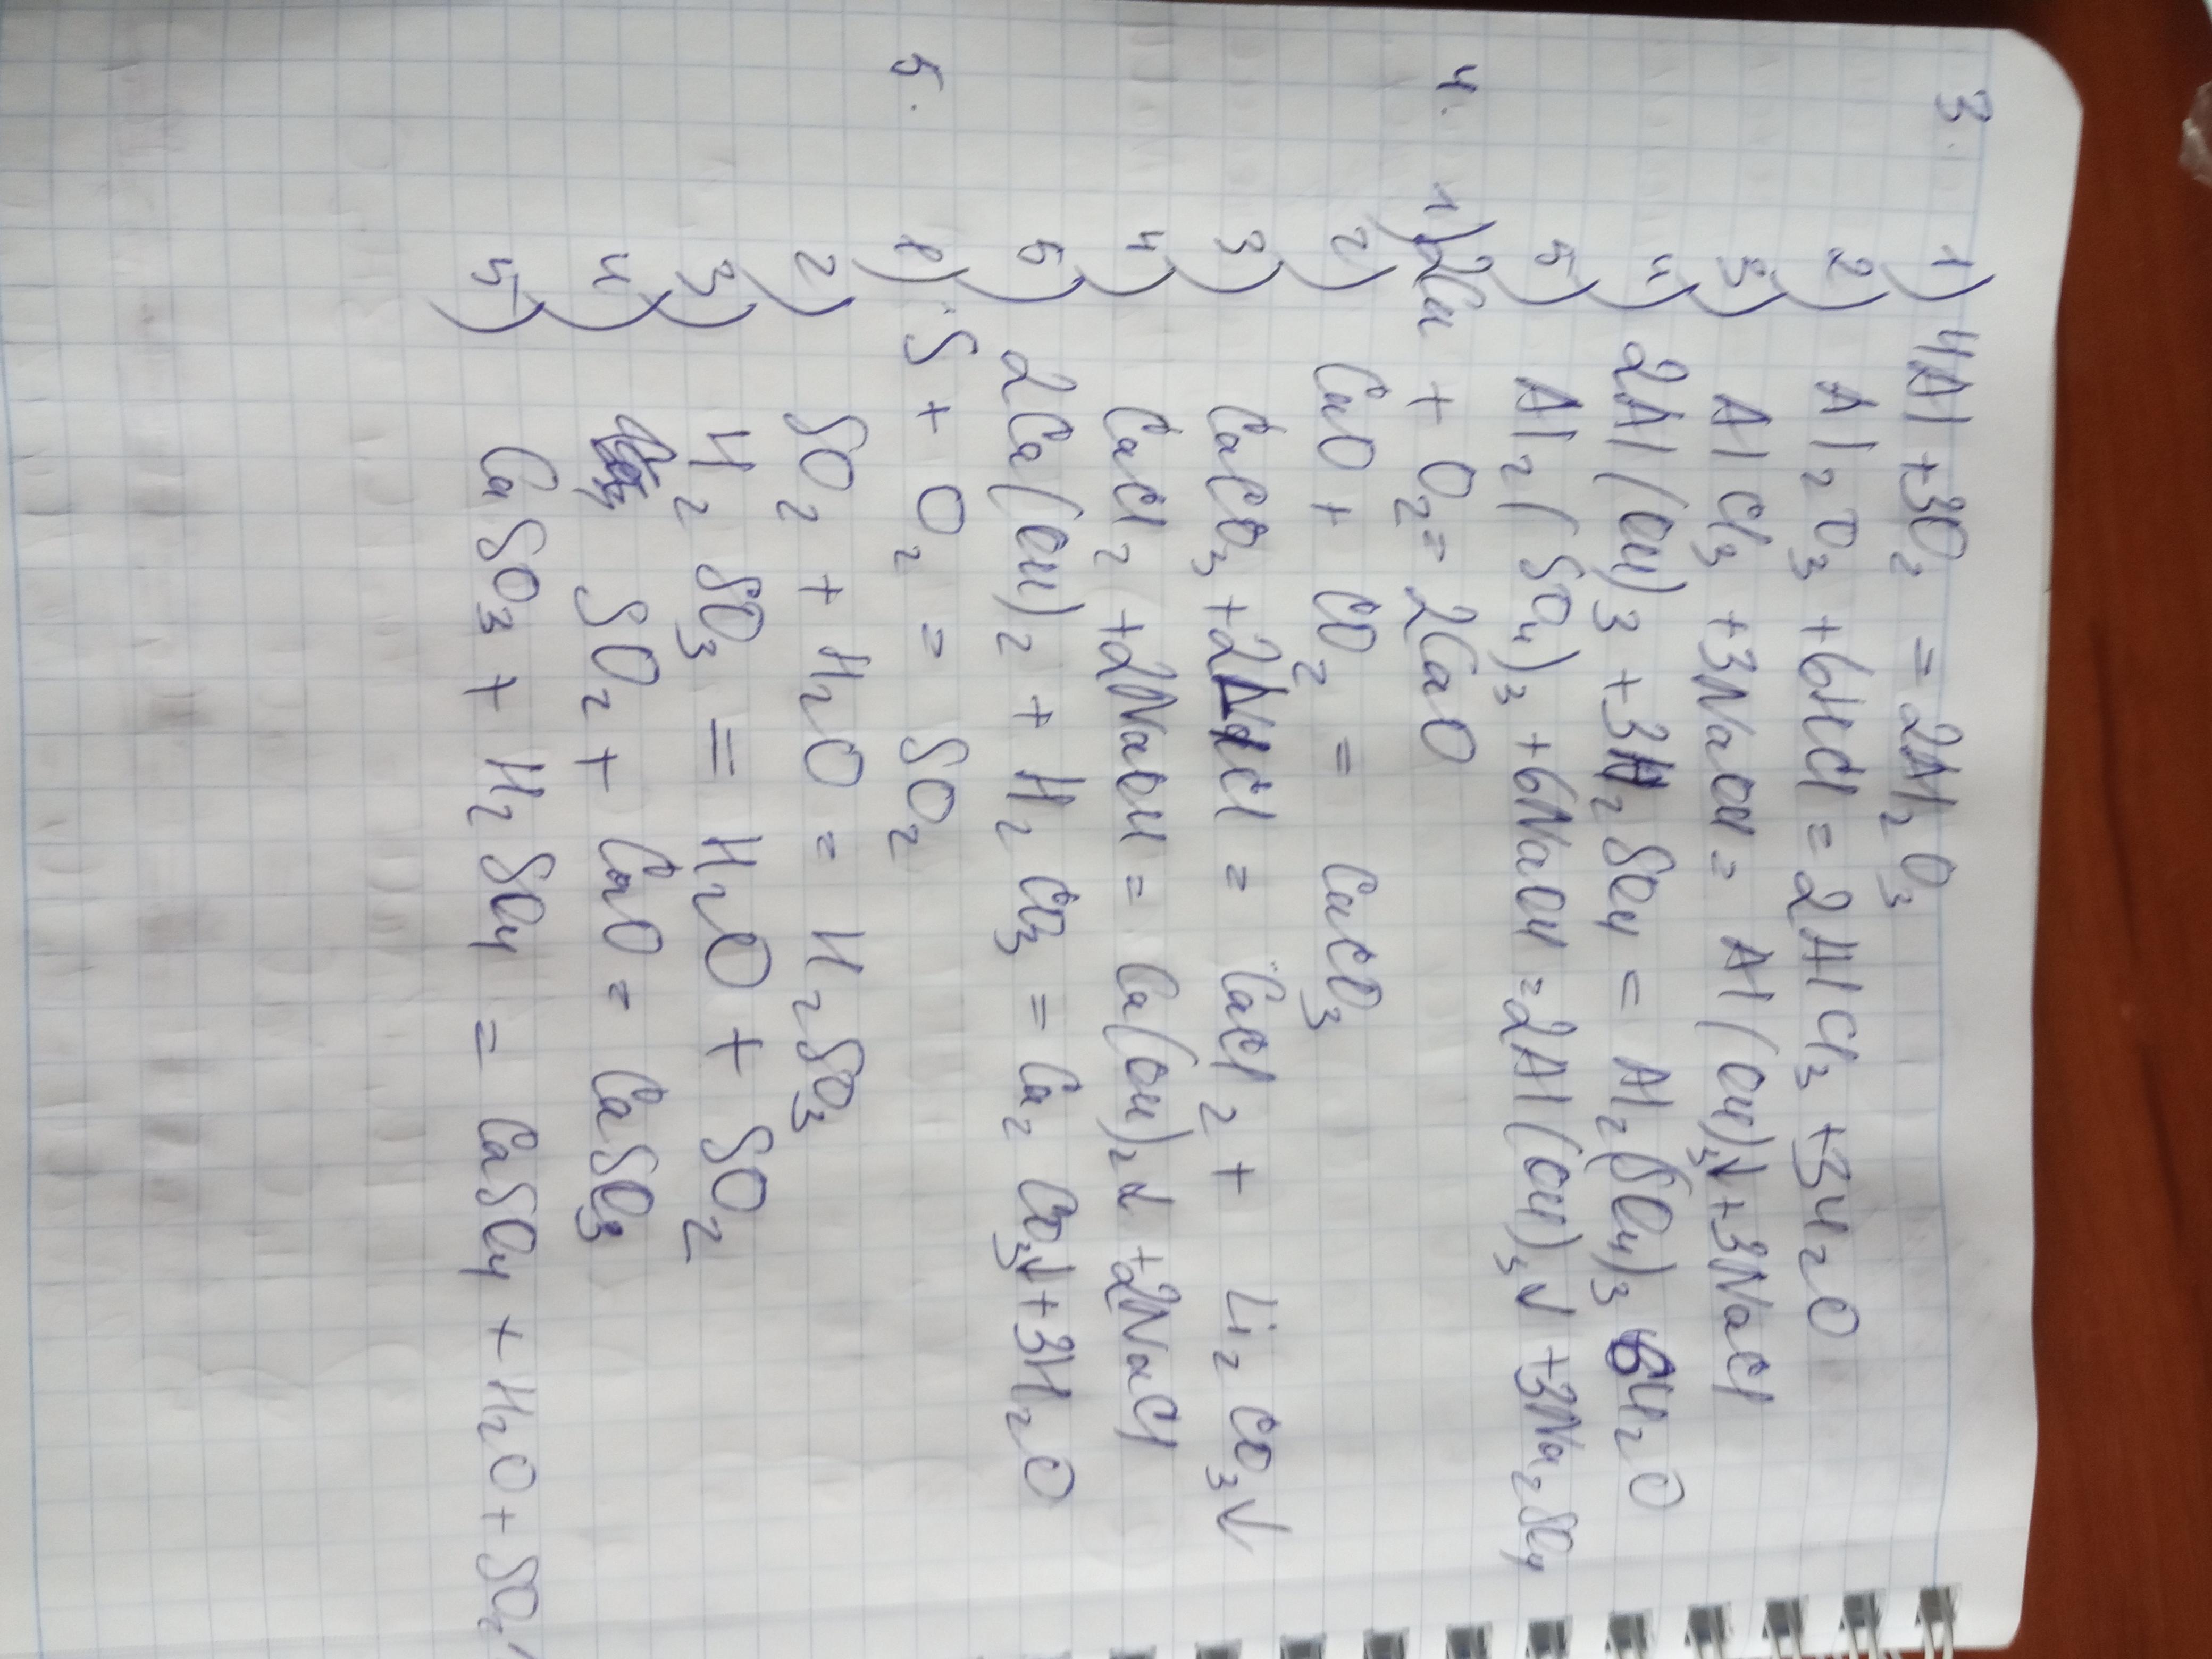 3. 1) 4Al + 3O₂ = 2Al₂O₃
2) Al₂O₃ + 6HCl = 2AlCl₃ + 3H₂O
3) AlCl₃ + 3NaOH = Al(OH)₃↓ + 3NaCl
4) 2Al(OH)₃ + 3H₂SO₄ = Al₂(SO₄)₃ 6H₂O
5) Al₂(SO₄)₃ + 6NaOH = 2Al(OH)₃↓ + 3Na₂SO₄
4. 1) 2Ca + O₂ = 2CaO
2) CaO + CO₂ = CaCO₃
3) CaCO₃ + 2 Cl = CaCl₂ + Li₂CO₃↓
4) CaCl₂ + 2NaOH = Ca(OH)₂↓ + 2NaCl
5) 2Ca(OH)₂ + H₂CO₃ = Ca₂CO₃↓ + 3H₂O
5. 1) S + O₂ = SO₂
2) SO₂ + H₂O = H₂SO₃
3) H₂SO₃ = H₂O + SO₂
4) SO₂ + CaO = CaSO₃
5) CaSO₃ + H₂SO₄ = CaSO₄ + H₂O + SO₂